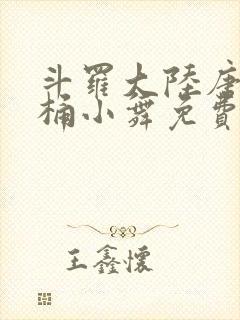 斗羅大陸唐
桶小舞免費
王鑫懷